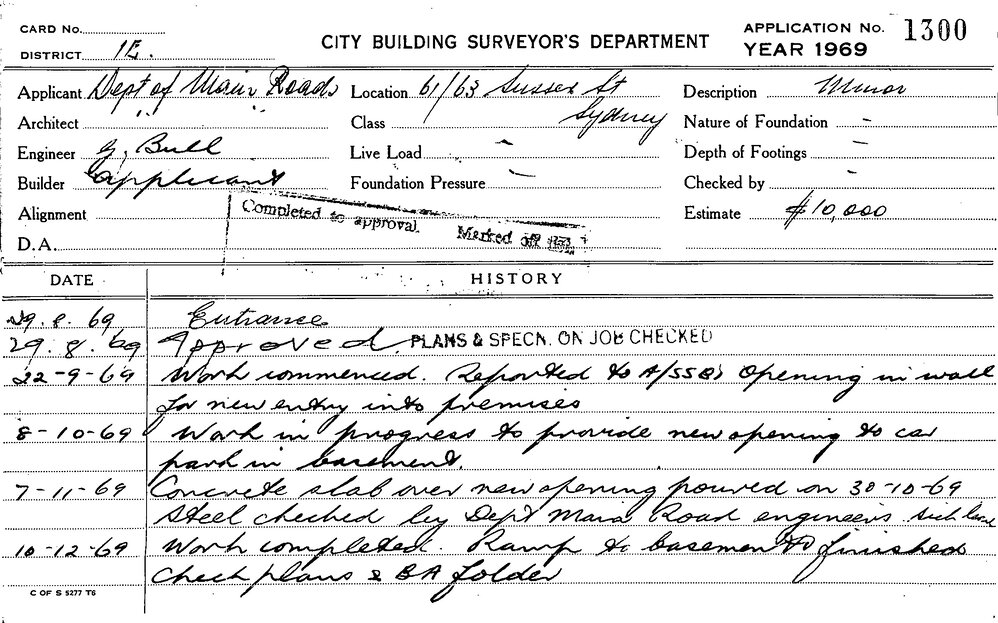 CARD No.
DISTRICT 1E.
CITY BUILDING SURVEYOR'S DEPARTMENT
APPLICATION No. 1300
YEAR 1969
Applicant Dept of Main Roads Location 61/63 Sussex St Description Minor
Architect " " Class Sydney Nature of Foundation -
Engineer G. Bull Live Load - Depth of Footings -
Builder Applicant Foundation Pressure - Checked by -
Alignment Completed to approval. Marked off Estimate $10,000
D.A.
DATE HISTORY
29.8.69 Entrance
29.8.69 Approved. PLANS & SPECN. ON JOB CHECKED
22-9-69 Work commenced. Reported to A/SSBS Opening in wall
for new entry into premises
8-10-69 Work in progress to provide new opening to car
park in basement.
7-11-69 Concrete slab over new opening poured on 30-10-69
Steel checked by Dept Main Road engineers
10-12-69 Work completed. Ramp to basement finished
Check plans & BA folder
C OF S 5277 T6